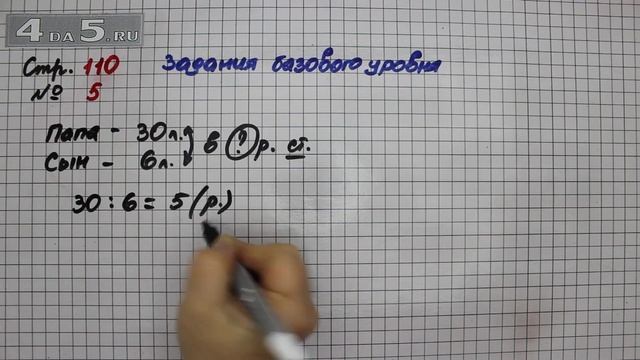 4 DA 5.RU
Стр. 110 Задания базового уровня
№ 5
Папа - 30 л. в ? р. ст.
Сын - 6 л.
30 : 6 = 5 (р.)